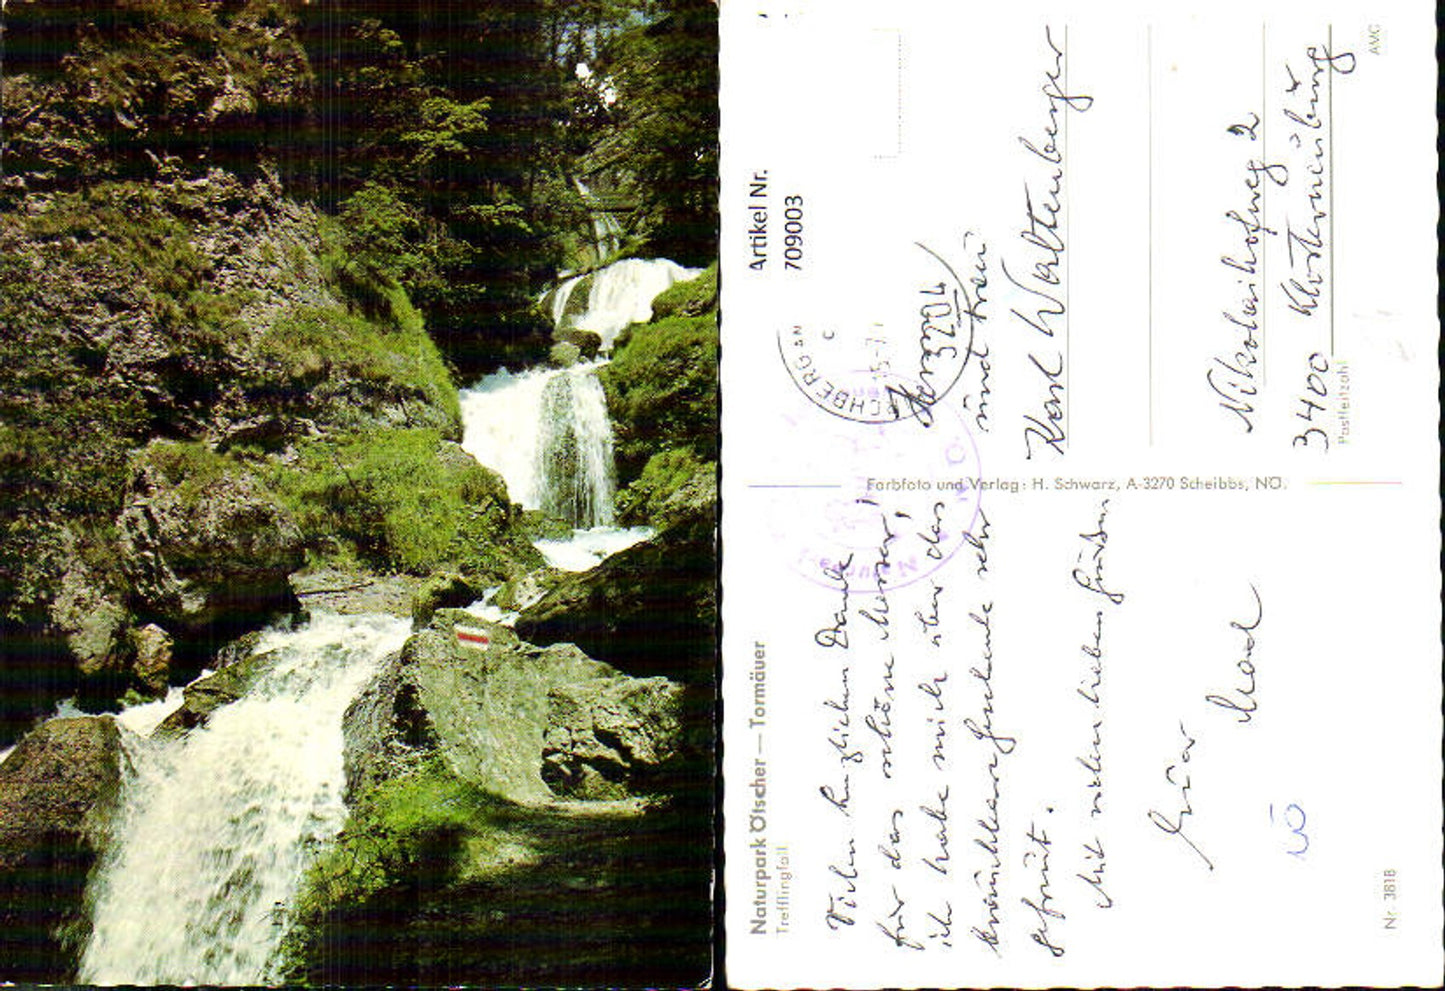 Naturpark Ötscher — Tormäuer
Trefflingfall
Artikel Nr.
709003
Vielen herzlichen Dank
für das schöne Messer,
ich habe mich über das
Geschenk sehr
gefreut.
Mit vielen lieben Grüßen
NÖ
Farbfoto und Verlag: H. Schwarz, A-3270 Scheibbs, NÖ.
Herrn
3204
und
Karl Waltenberger
Nikolaihofweg 2
3400 Klosterneuburg
Postleitzahl
Nr. 3818
AMC